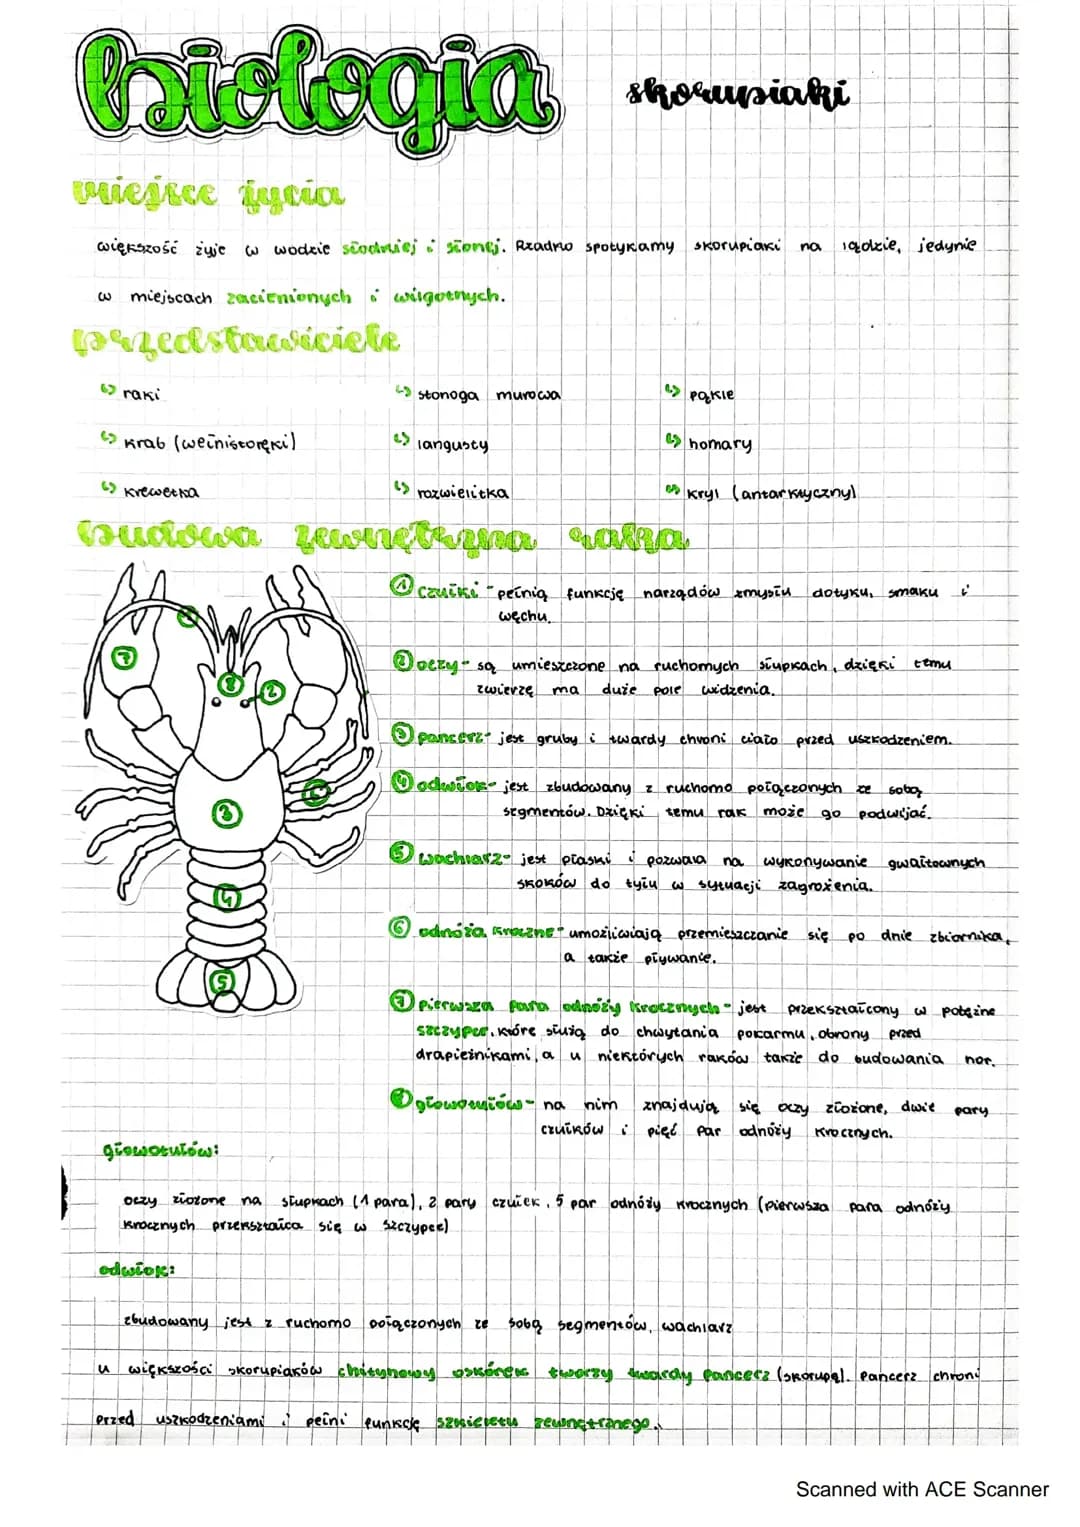 biologia
skorupiaki
miejsce życia
większość żyje w wodzie słodniej i słonej. Rzadno spotykamy skorupiaki na lądzie, jedynie
w miejscach zacienionych i wilgotnych.
przedstawiciele
raki
stonoga murowa
pąkle
krab (wełnistoręki)
langusty
homary
krewetka
rozwielitka
kryl (antarktyczny)
budowa zewnętrzna raka
1 czułki - pełnią funkcję narządów zmysłu dotyku, smaku i
węchu.
2 oczy - są umieszczone na ruchomych słupkach, dzięki temu
zwierzę ma duże pole widzenia.
3 pancerz - jest gruby i twardy chroni ciało przed uszkodzeniem.
4 odwłok - jest zbudowany z ruchomo połączonych ze sobą
segmentów. Dzięki temu rak może go podwijać.
5 wachlarz - jest płaski i pozwala na wykonywanie gwałtownych
skoków do tyłu w sytuacji zagrożenia.
6 odnóża kroczne - umożliwiają przemieszczanie się po dnie zbiornika,
a także pływanie.
7 pierwsza para odnóży krocznych - jest przekształcony w potężne
szczypce, które służą do chwytania pokarmu, obrony przed
drapieżnikami, a u niektórych raków także do budowania nor.
8 głowotułów - na nim znajdują się oczy złożone, dwie pary
czułków i pięć par odnóży krocznych.
głowotułów:
oczy złożone na słupkach (1 para), 2 pary czułek, 5 par odnóży krocznych (pierwsza para odnóży
krocznych przekształca się w szczypce)
odwłok:
zbudowany jest z ruchomo połączonych ze sobą segmentów, wachlarz
u większości skorupiaków chitynowy oskórek tworzy twardy pancerz (skorupę). Pancerz chroni
przed uszkodzeniami i pełni funkcję szkieletu zewnętrznego.
7
1
8
2
3
6
4
5
Scanned with ACE Scanner